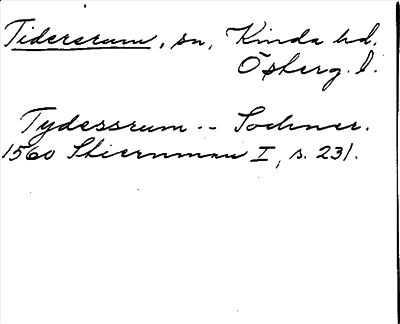 Tidersrum, sn, Kinda hd.
Österg. l.
Tydessrum -- Sochner.
1560 Stiernman I, s. 231.